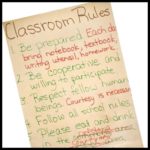 Classroom Rules
Be prepared. Each day
bring notebook, textbook,
writing utensil, homework,
2. Be cooperative and
willing to participate
3. Respect fellow human
beings. Courtesy is necessary
4. Follow all school rules
5. Please eat and drink
in the areas